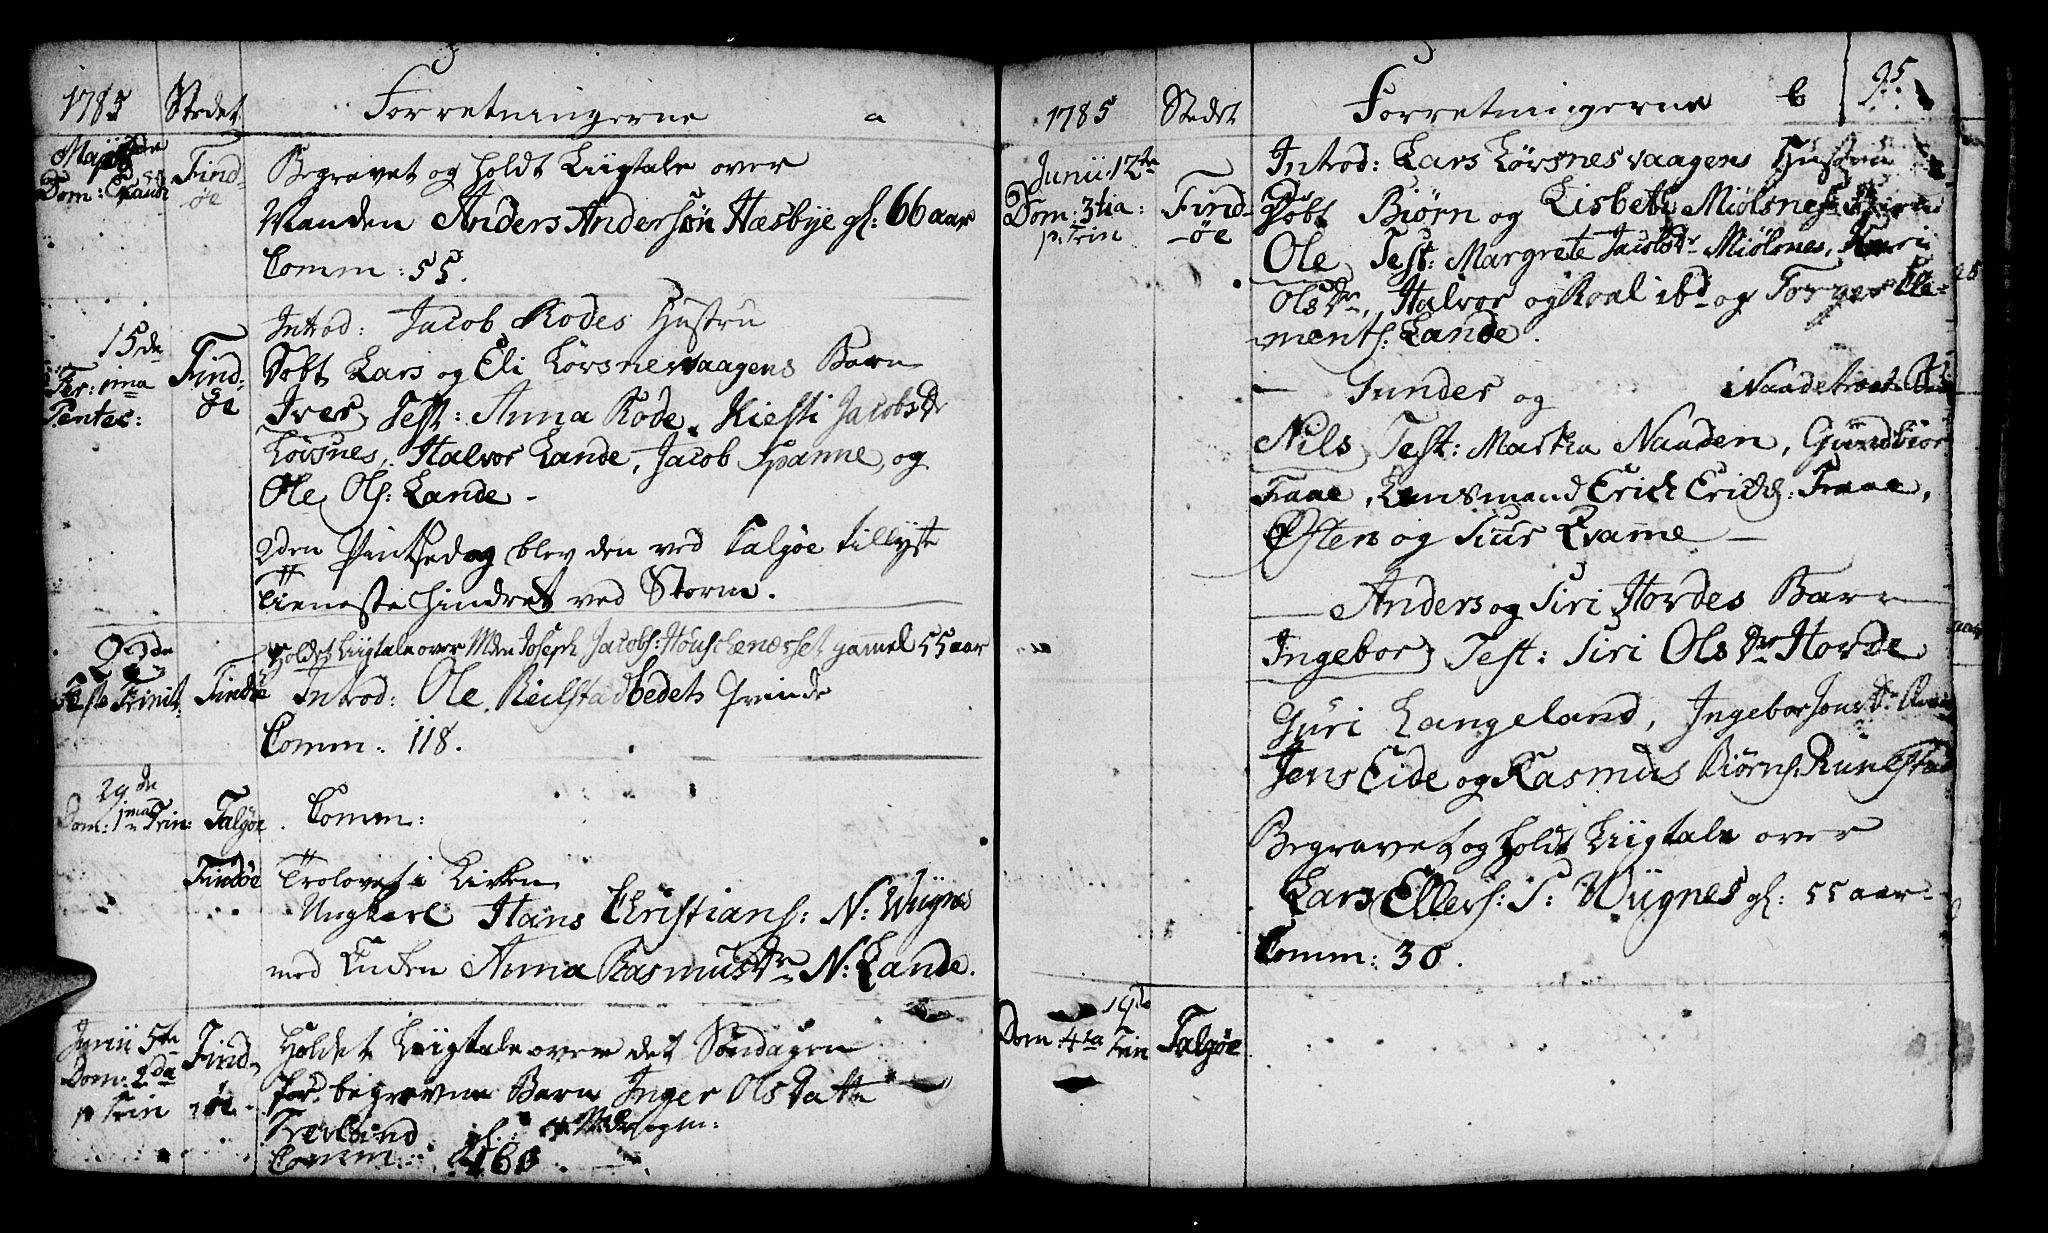 1785 Stedet Forretningerne a
Dom: Exaudi Find-
øe
Begravet og holdt Liigtale over
Manden Anders Andersøn Hæsbye gl: 66 aar
Comm: 55.
15de
Fer: 1ma
Pentec:
Find-
øe
Introd: Jacob Rodes Hustru
Døbt Lars og Eli Løvsnesvaagens Barn
Iver, Test: Anna Rode, Kiesti JacobsDr
Løvsnes, Halvor Lande, Jacob Spanne, og
Ole Ols: Lande -
2den Pintsedag blev den ved Talgøe tillyste
Tieneste hindret ved Storm.
22de
Festo Trinit: Findøe
Holdet Liigtale over Mden Joseph Jacobs: gammel 55 aar
Introd: Ole Qvinde
Comm: 118.
29de
Dom: 1ma Trin: Talgøe Comm:
Findøe Trolovet i Kirken
Ungkarl Hans Christians: N: Wiignes
med Enken Anna RasmusDr N: Lande.
Junii 5te
Dom: 2da
p Trin
Find-
øe
Holdet Liigtale over det Søndagen
for begravne Barn Inger OlsDatter
gl:
Comm:
1785 Stedet Forretningerne b 95
Junii 12te
Dom: 3tia:
p. Trin
Find-
øe
Introd: Lars Løvsnesvaagens Hustru
Døbt Biørn og Lisbeth Miølsnes Barn
Ole, Test: Margrete JacobsDr Miølsnes,
OlsDr, Halvor og Roal ibd og Torger Cle-
ments: Lande.
- Gunder og
Nils, Test: Martha Naaden, Gundbior
Faae, Lensmand Erich Erichs: Faae,
Østen og Siur Qvame -
- Anders og Siri Hordes Barn
Ingebor, Test: Siri OlsDr Horde
Guri Langeland, Ingebor JonsDr
Jens Eide og Rasmus Biørns:
Begravet og holdt Liigtale over
Lars Ellers: S: Wiignes gl: 55 aar
Comm: 30.
19de
Dom: 4ta Trin Talgøe